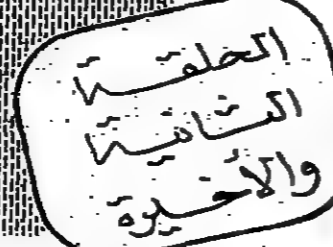 الحلقة
الثانية
والأخيرة